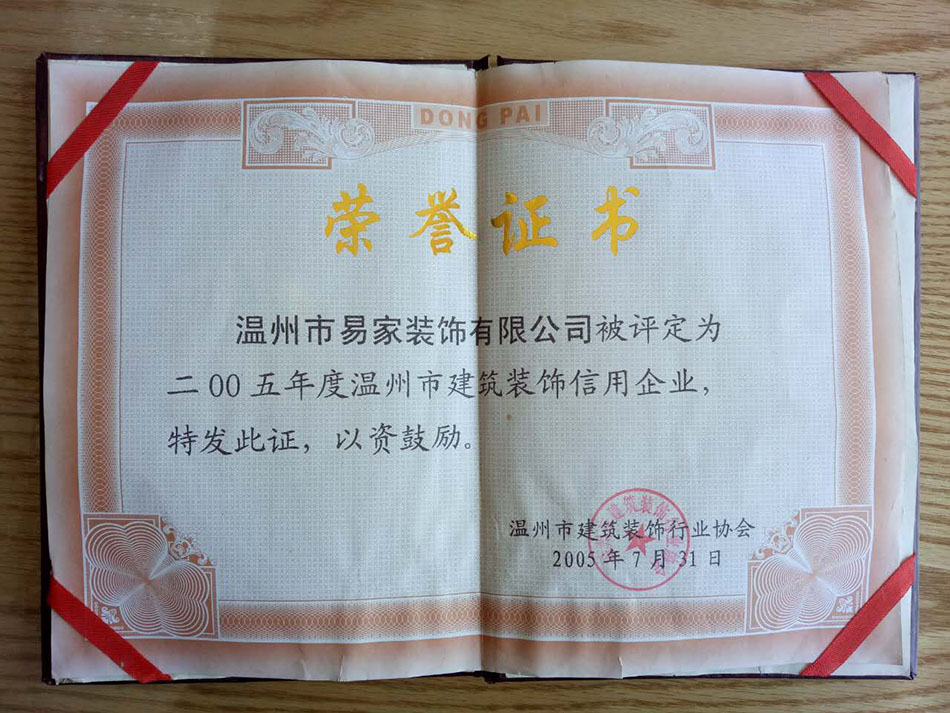 DONG PAI
荣誉证书
温州市易家装饰有限公司被评定为
二00五年度温州市建筑装饰信用企业,
特发此证，以资鼓励。
温州市建筑装饰行业协会
2005年7月31日